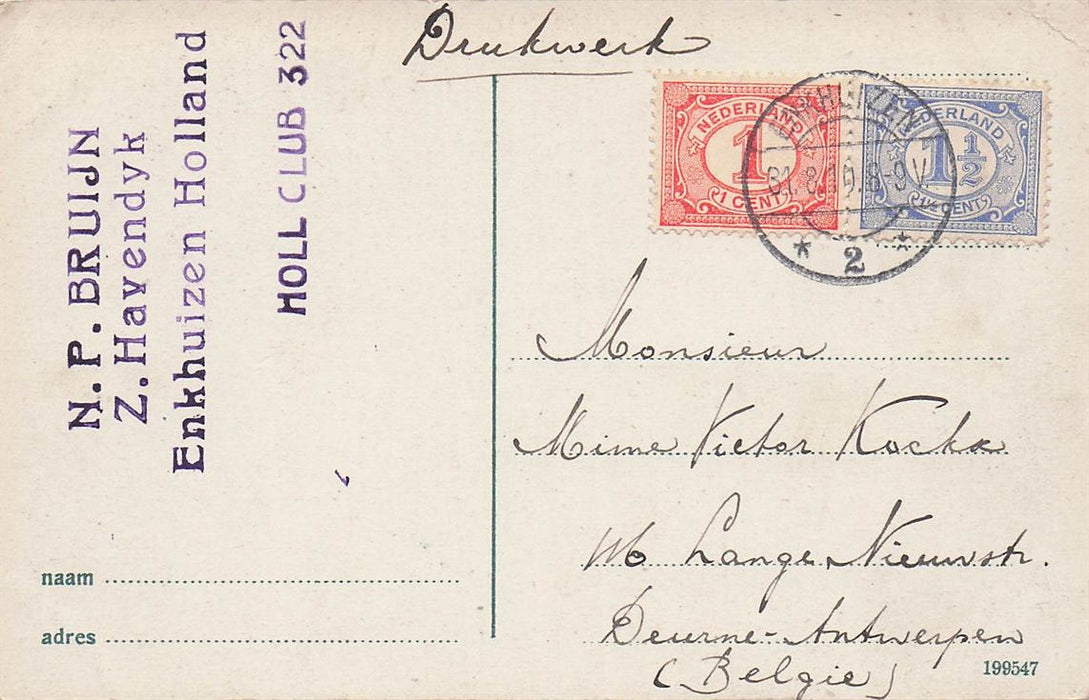 Drukwerk
N.P. BRUIJN
Z. Havendyk
Enkhuizen Holland
HOLL CLUB 322
NEDERLAND
1
1 CENT
NEDERLAND
1½
1½ CENT
ENKHUIZEN
31.8.19.8-9V
* 2 *
Monsieur
Mime Victor Kockx
Lange Nieuwstr.
Deurne-Antwerpen
(Belgie)
naam
adres
199547